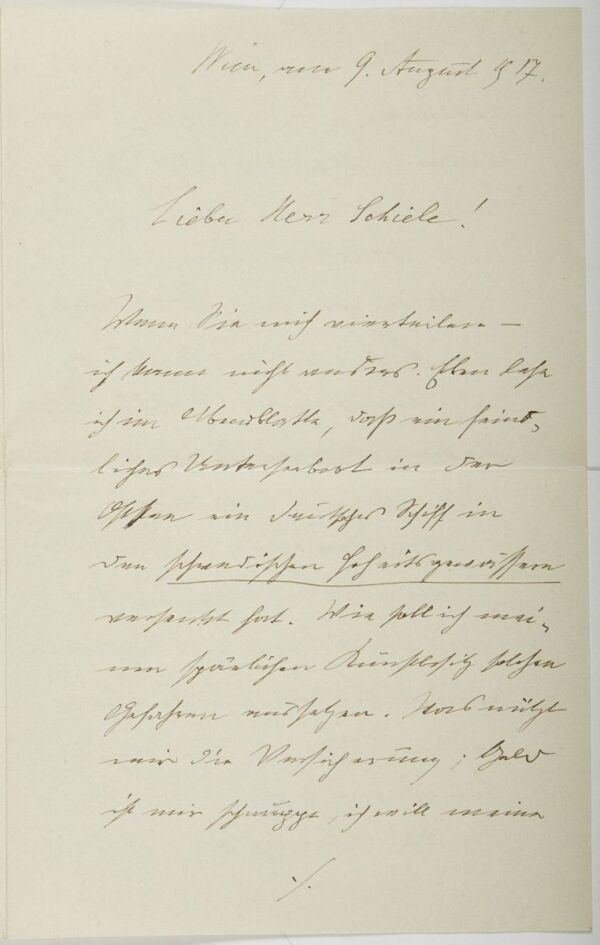 Wien, am 9. August 1917.
Lieber Herr Schiele!
Wenn Sie mich vierteilen –
ich kann nicht anders. Eben lese
ich im Abendblatte, daß ein feind-
liches Unterseeboot in der
Ostsee ein deutsches Schiff in
den schwedischen Hoheitsgewässern
versenkt hat. Wie soll ich mei-
nen spärlichen Kunstbesitz solchen
Gefahren aussetzen. Was nützt
mir die Versicherung; Geld
ist mir schnuppe, ich will meine
./.